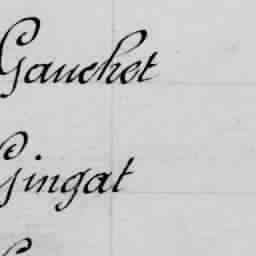 Gauchet
Gingat